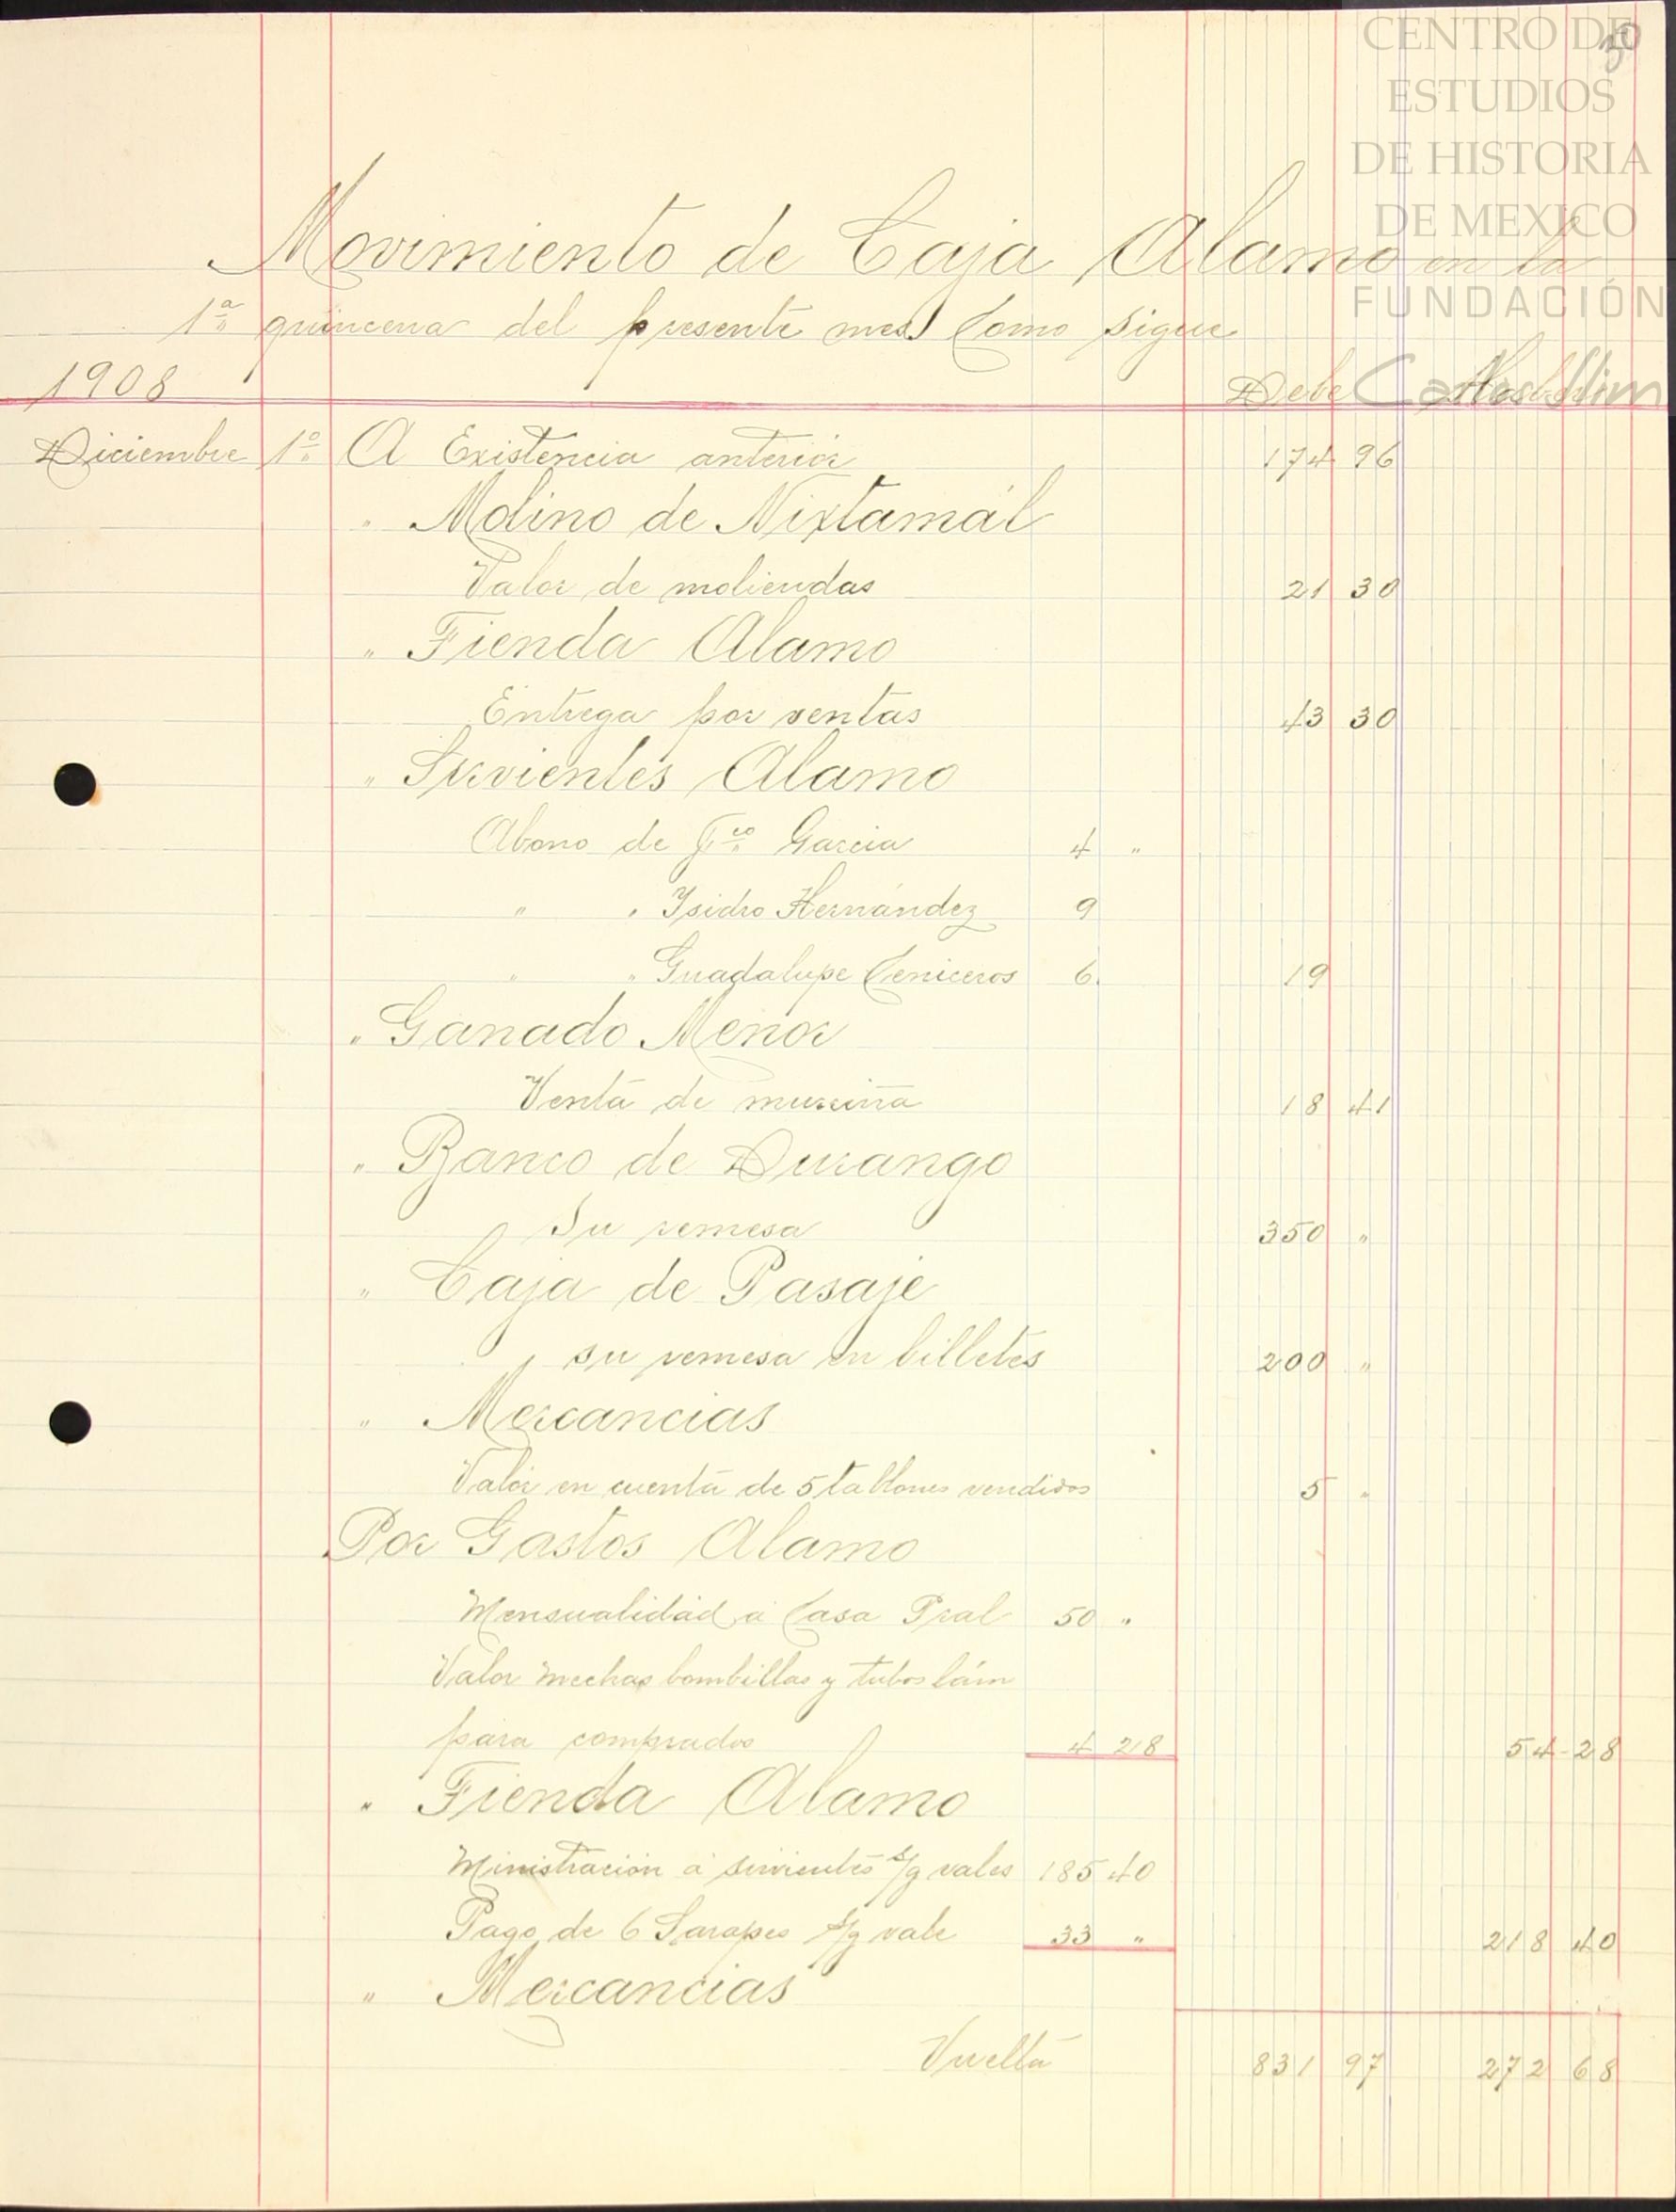 CENTRO DE
ESTUDIOS
DE HISTORIA
DE MEXICO
FUNDACIÓN
Carlos Slim
30
Movimiento de Caja Alamo en la
1ª quincena del presente mes Como sigue
1908 Debe Haber
Diciembre 1º A Existencia anterior 174 96
" Molino de Nixtamál
Valor de moliendas 21 30
" Tienda Alamo
Entrega por ventas 43 30
" Sirvientes Alamo
Abono de Fco Garcia 4 "
" " Ysidro Hernández 9
" " Guadalupe Ceniceros 6 19
" Ganado Menor
Venta de 18 41
" Banco de Durango
Su remesa 350 "
" Caja de Pasaje
su remesa en billetes 200 "
" Mercancias
Valor en cuenta de 5 tablones vendidos 5 "
Por Gastos Alamo
Mensualidad á Casa Pral 50 "
Valor mechas bombillas y tubos lám
para comprados 4 28 54 28
" Tienda Alamo
Ministración á sirvientes s/g vales 185 40
Pago de 6 Sarapes s/g vale 33 " 218 40
" Mercancias
Vuelta 831 97 272 68